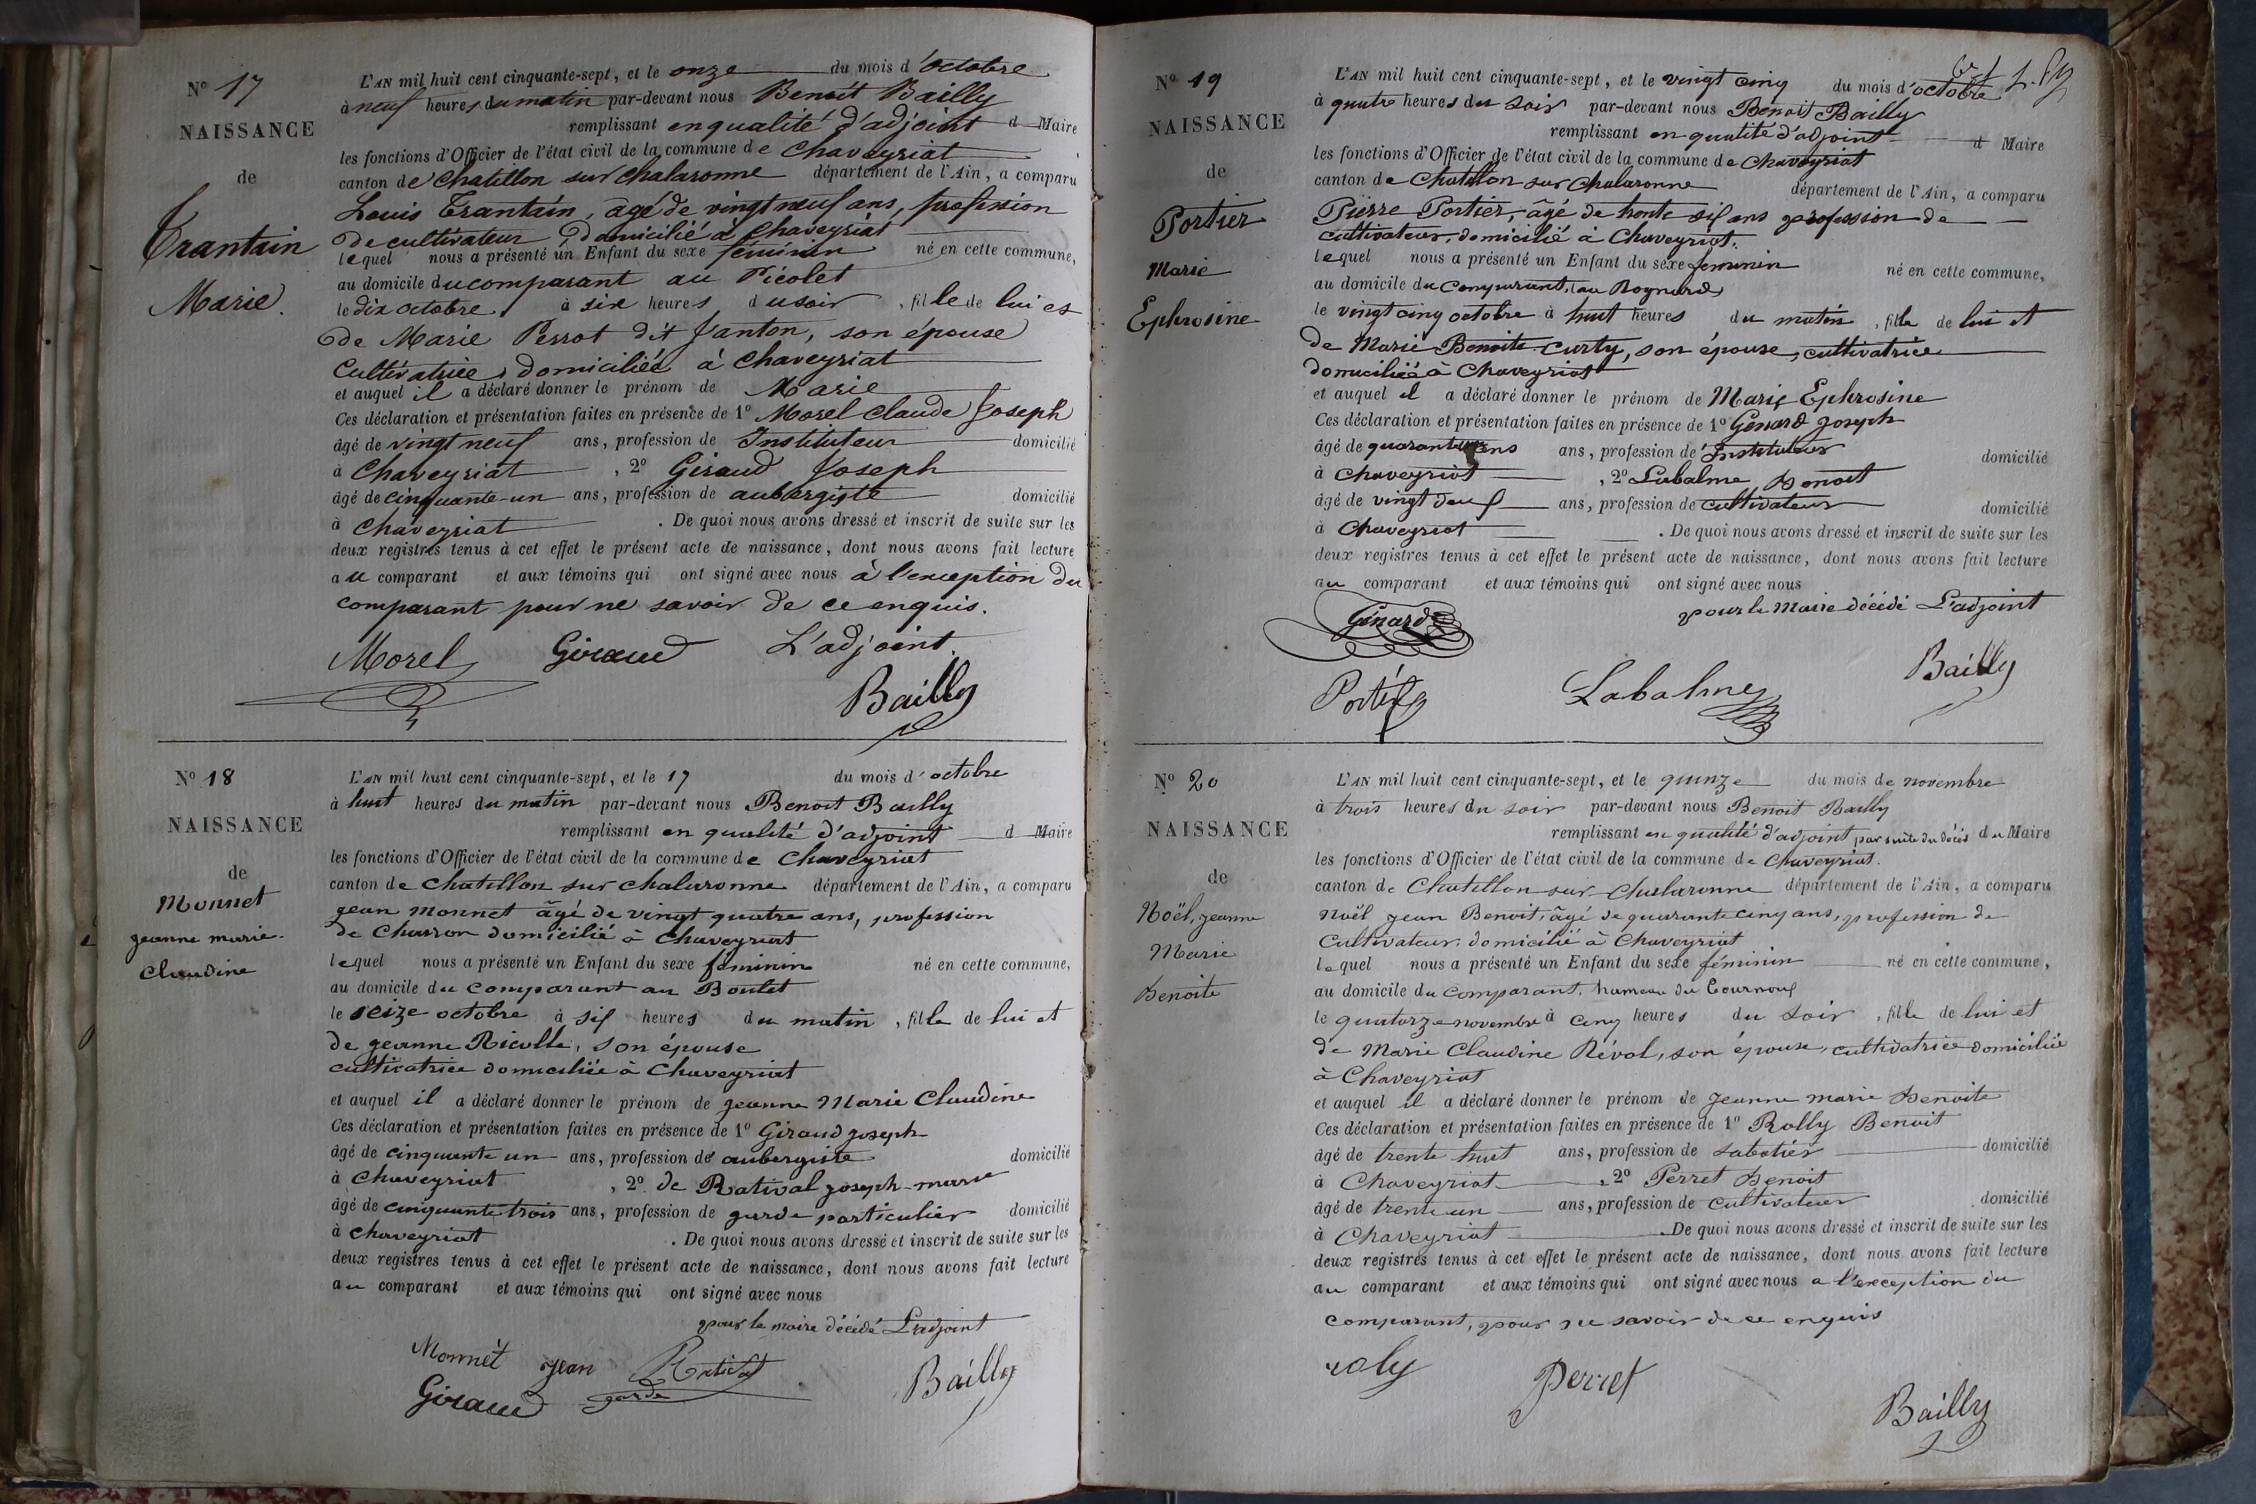 N° 17
NAISSANCE
de
Trantain
Marie.
L'AN mil huit cent cinquante-sept, et le onze du mois d'octobre
à neuf heures du matin par-devant nous Benoît Bailly
remplissant en qualité d'adjoint d Maire
les fonctions d'Officier de l'état civil de la commune de Chaveyriat
canton de Chatillon sur Chalaronne département de l'Ain, a comparu
Louis Trantain, âgé de vingt neuf ans, profession
de cultivateur, domicilié à Chaveyriat
lequel nous a présenté un Enfant du sexe féminin né en cette commune,
au domicile du comparant au Picolet
le dix octobre à six heures du soir, fille de lui et
de Marie Perrot dit Janton, son épouse
cultivatrice, domiciliée à Chaveyriat
et auquel il a déclaré donner le prénom de Marie
Ces déclaration et présentation faites en présence de 1° Morel Claude Joseph
âgé de vingt neuf ans, profession de Instituteur domicilié
à Chaveyriat, 2° Giraud Joseph
âgé de cinquante-un ans, profession de aubergiste domicilié
à Chaveyriat. De quoi nous avons dressé et inscrit de suite sur les
deux registres tenus à cet effet le présent acte de naissance, dont nous avons fait lecture
au comparant et aux témoins qui ont signé avec nous à l'exception du
comparant pour ne savoir de ce enquis.
Morel Giraud L'adjoint
Bailly
N° 18
NAISSANCE
de
Monnet
jeanne marie
Claudine
L'AN mil huit cent cinquante-sept, et le 17 du mois d'octobre
à huit heures du matin par-devant nous Benoit Bailly
remplissant en qualité d'adjoint d Maire
les fonctions d'Officier de l'état civil de la commune de Chaveyriat
canton de Chatillon sur Chalaronne département de l'Ain, a comparu
jean Monnet âgé de vingt quatre ans, profession
de Charron domicilié à Chaveyriat
lequel nous a présenté un Enfant du sexe féminin né en cette commune,
au domicile du comparant au Boulet
le seize octobre à six heures du matin, fille de lui et
de jeanne Ricolle, son épouse
cultivatrice domiciliée à Chaveyriat
et auquel il a déclaré donner le prénom de jeanne Marie Claudine
Ces déclaration et présentation faites en présence de 1° Giraud joseph
âgé de cinquante un ans, profession de aubergiste domicilié
à Chaveyriat, 2° de Ratival joseph-marie
âgé de cinquante trois ans, profession de garde particulier domicilié
à Chaveyriat. De quoi nous avons dressé et inscrit de suite sur les
deux registres tenus à cet effet le présent acte de naissance, dont nous avons fait lecture
au comparant et aux témoins qui ont signé avec nous
pour le maire décédé L'adjoint
Monnet jean Ratival
Giraud garde Bailly
N° 19
NAISSANCE
de
Portier
Marie
Ephrosine
L'AN mil huit cent cinquante-sept, et le vingt cinq du mois d'octobre
à quatre heures du soir par-devant nous Benoit Bailly
remplissant en qualité d'adjoint d Maire
les fonctions d'Officier de l'état civil de la commune de Chaveyriat
canton de Chatillon sur Chalaronne département de l'Ain, a comparu
Pierre Portier, âgé de trente six ans profession de
cultivateur, domicilié à Chaveyriat.
lequel nous a présenté un Enfant du sexe féminin né en cette commune,
au domicile du comparant, au Rognard
le vingt cinq octobre à huit heures du matin, fille de lui et
de Marie Benoite Curty, son épouse, cultivatrice
domiciliée à Chaveyriat
et auquel il a déclaré donner le prénom de Marie Ephrosine
Ces déclaration et présentation faites en présence de 1° Génard Joseph
âgé de ans, profession de Instituteur domicilié
à Chaveyriat, 2° Labalme Benoit
âgé de vingt neuf ans, profession de cultivateur domicilié
à Chaveyriat. De quoi nous avons dressé et inscrit de suite sur les
deux registres tenus à cet effet le présent acte de naissance, dont nous avons fait lecture
au comparant et aux témoins qui ont signé avec nous
pour le Maire décédé L'adjoint
Génard
Portier Labalme Bailly
N° 20
NAISSANCE
de
Noël, jeanne
Marie
Benoite
L'AN mil huit cent cinquante-sept, et le quinze du mois de novembre
à trois heures du soir par-devant nous Benoit Bailly
remplissant en qualité d'adjoint par suite du décès du Maire
les fonctions d'Officier de l'état civil de la commune de Chaveyriat.
canton de Chatillon sur Chalaronne département de l'Ain, a comparu
Noël jean Benoit, âgé de quarante cinq ans, profession de
cultivateur, domicilié à Chaveyriat
lequel nous a présenté un Enfant du sexe féminin né en cette commune,
au domicile du comparant, hameau du Tournoux
le quatorze novembre à cinq heures du soir, fille de lui et
de Marie Claudine Révol, son épouse, cultivatrice domiciliée
à Chaveyriat
et auquel il a déclaré donner le prénom de jeanne marie Benoite
Ces déclaration et présentation faites en présence de 1° Rolly Benoit
âgé de trente huit ans, profession de sabotier domicilié
à Chaveyriat, 2° Perret Benoit
âgé de trente un ans, profession de cultivateur domicilié
à Chaveyriat. De quoi nous avons dressé et inscrit de suite sur les
deux registres tenus à cet effet le présent acte de naissance, dont nous avons fait lecture
au comparant et aux témoins qui ont signé avec nous a l'exception du
comparant, pour ne savoir de ce enquis
roly Perret
Bailly